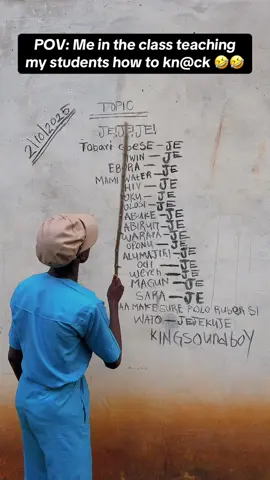 POV: Me in the class teaching
my students how to kn@ck 🤣🤣
TOPIC
2/10/2025
JE,JE,JE!
Tabari obESE – JE
IWIN — JE
EBORA — JE
MAMI WATER – JE
HIV — JE
OKU — JE
ABUKE — JE
ABIRUN — JE
WARAPA — JE
OPONU — JE
ALUMAJIRI — JE
Odi — JE
Wereh — JE
MAGUN — JE
SARA — JE
AA MAKE SURE POLO RUBBER SI
WATO — JEJEKUJE
KINGSoundboy